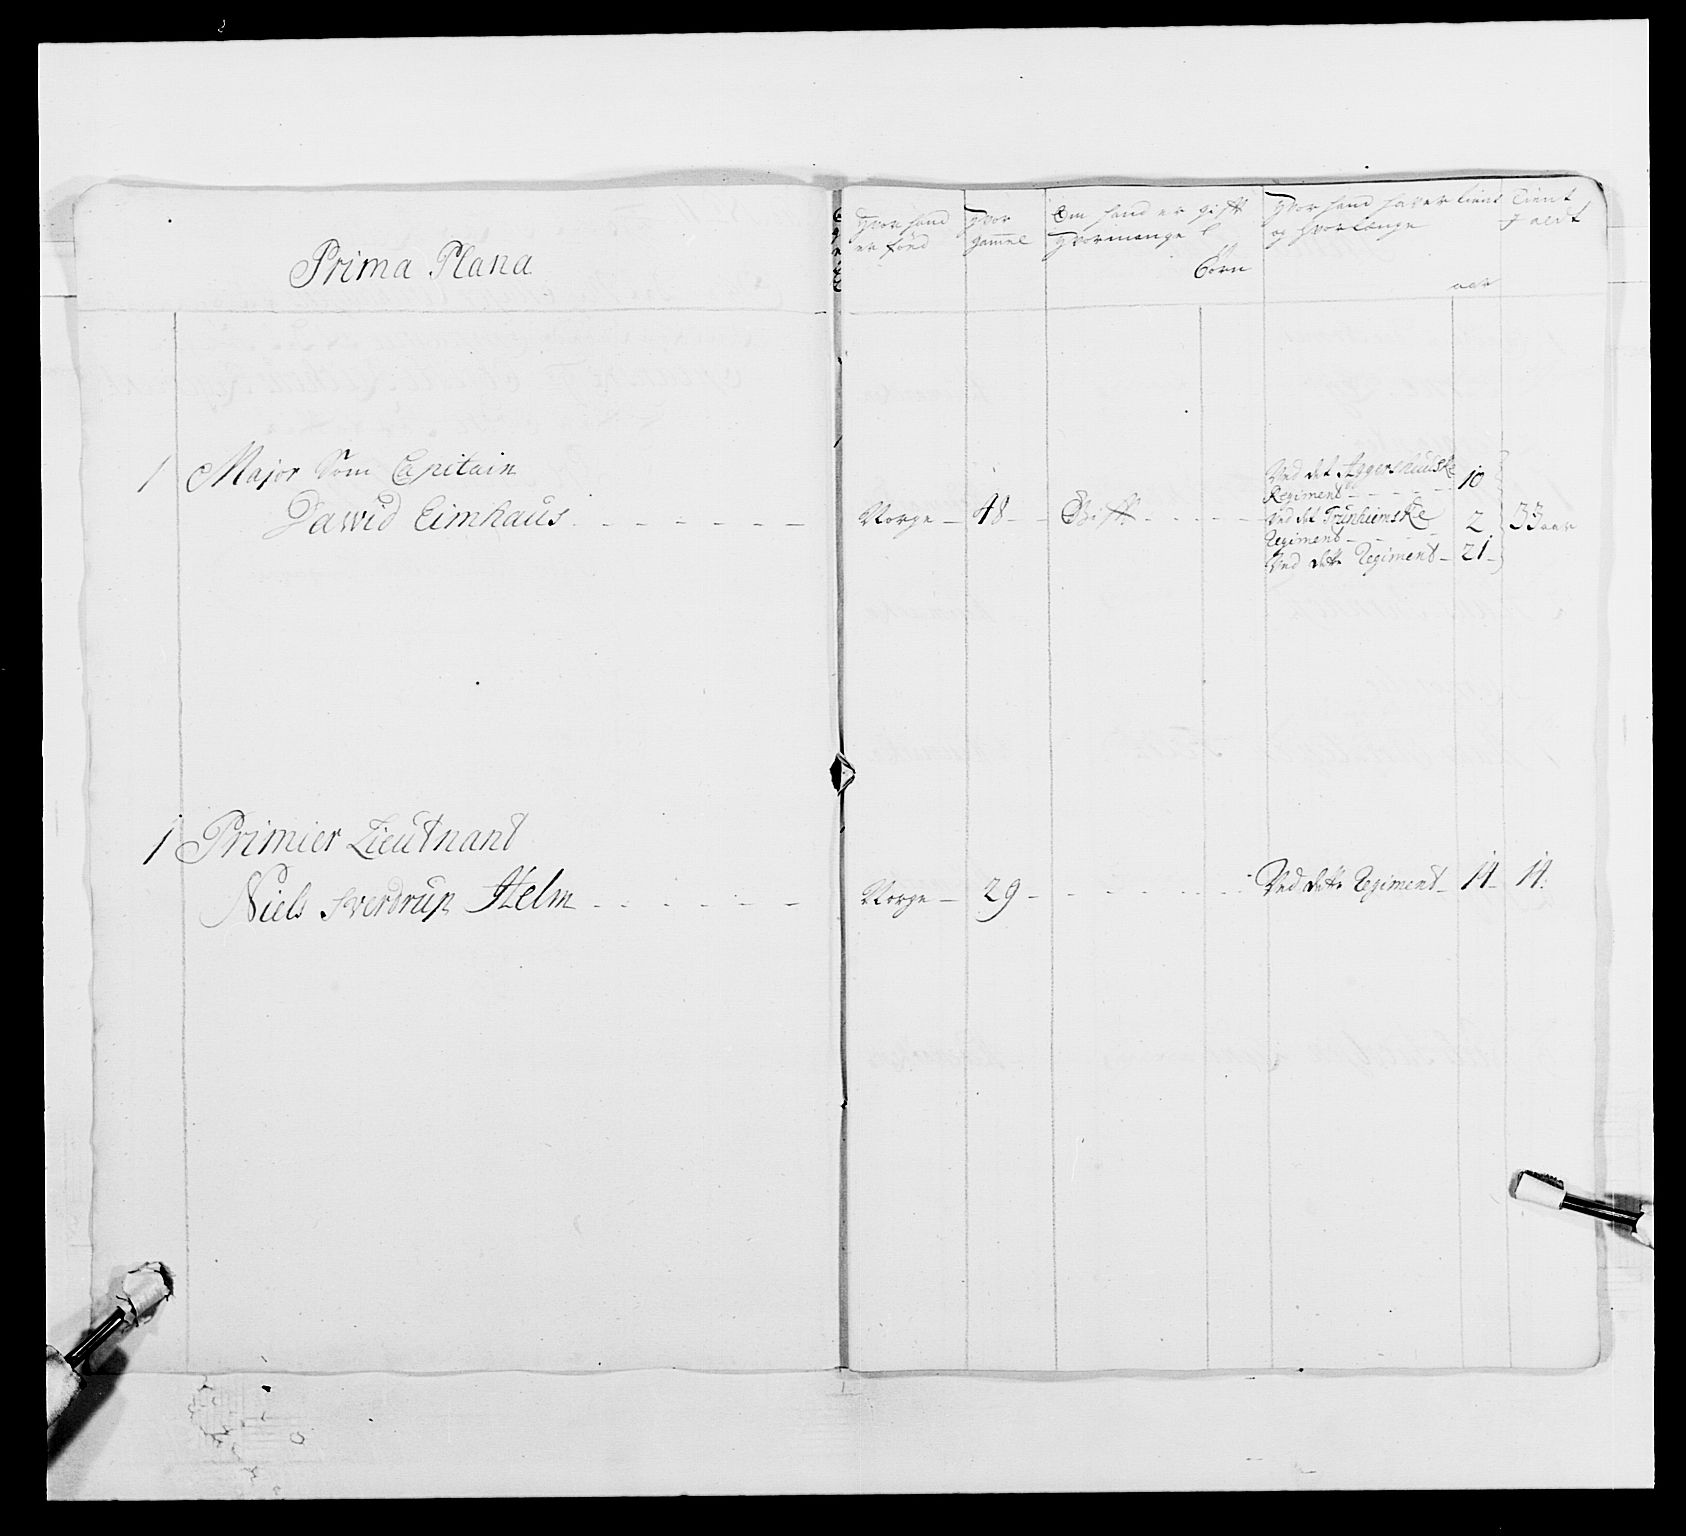 Prima Plana
Hvor hand er fönd
Hvor gammel
Om hand er gift
Hvormange
Börn
Hvor hand haver tient
og Hvorlænge
aar
Tient
I alt
1 Major Som Capitain
Dawid Eimhaus
Norge 48 Gift
Ved det Aggershuuske
Regiment 10
Ved det Trunhiemske
Regiment 2
Ved dette Regiment 21
33 aar
1 Primier Lieutnant
Niels Sverdrup Helm
Norge 29
Ved dette Regiment 14 14